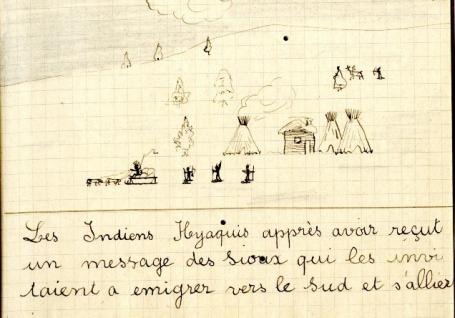 Les Indiens Hyaquis apprès avoir reçut
un message des Sioux qui les invi
taient a emigrer vers le sud et s'allier